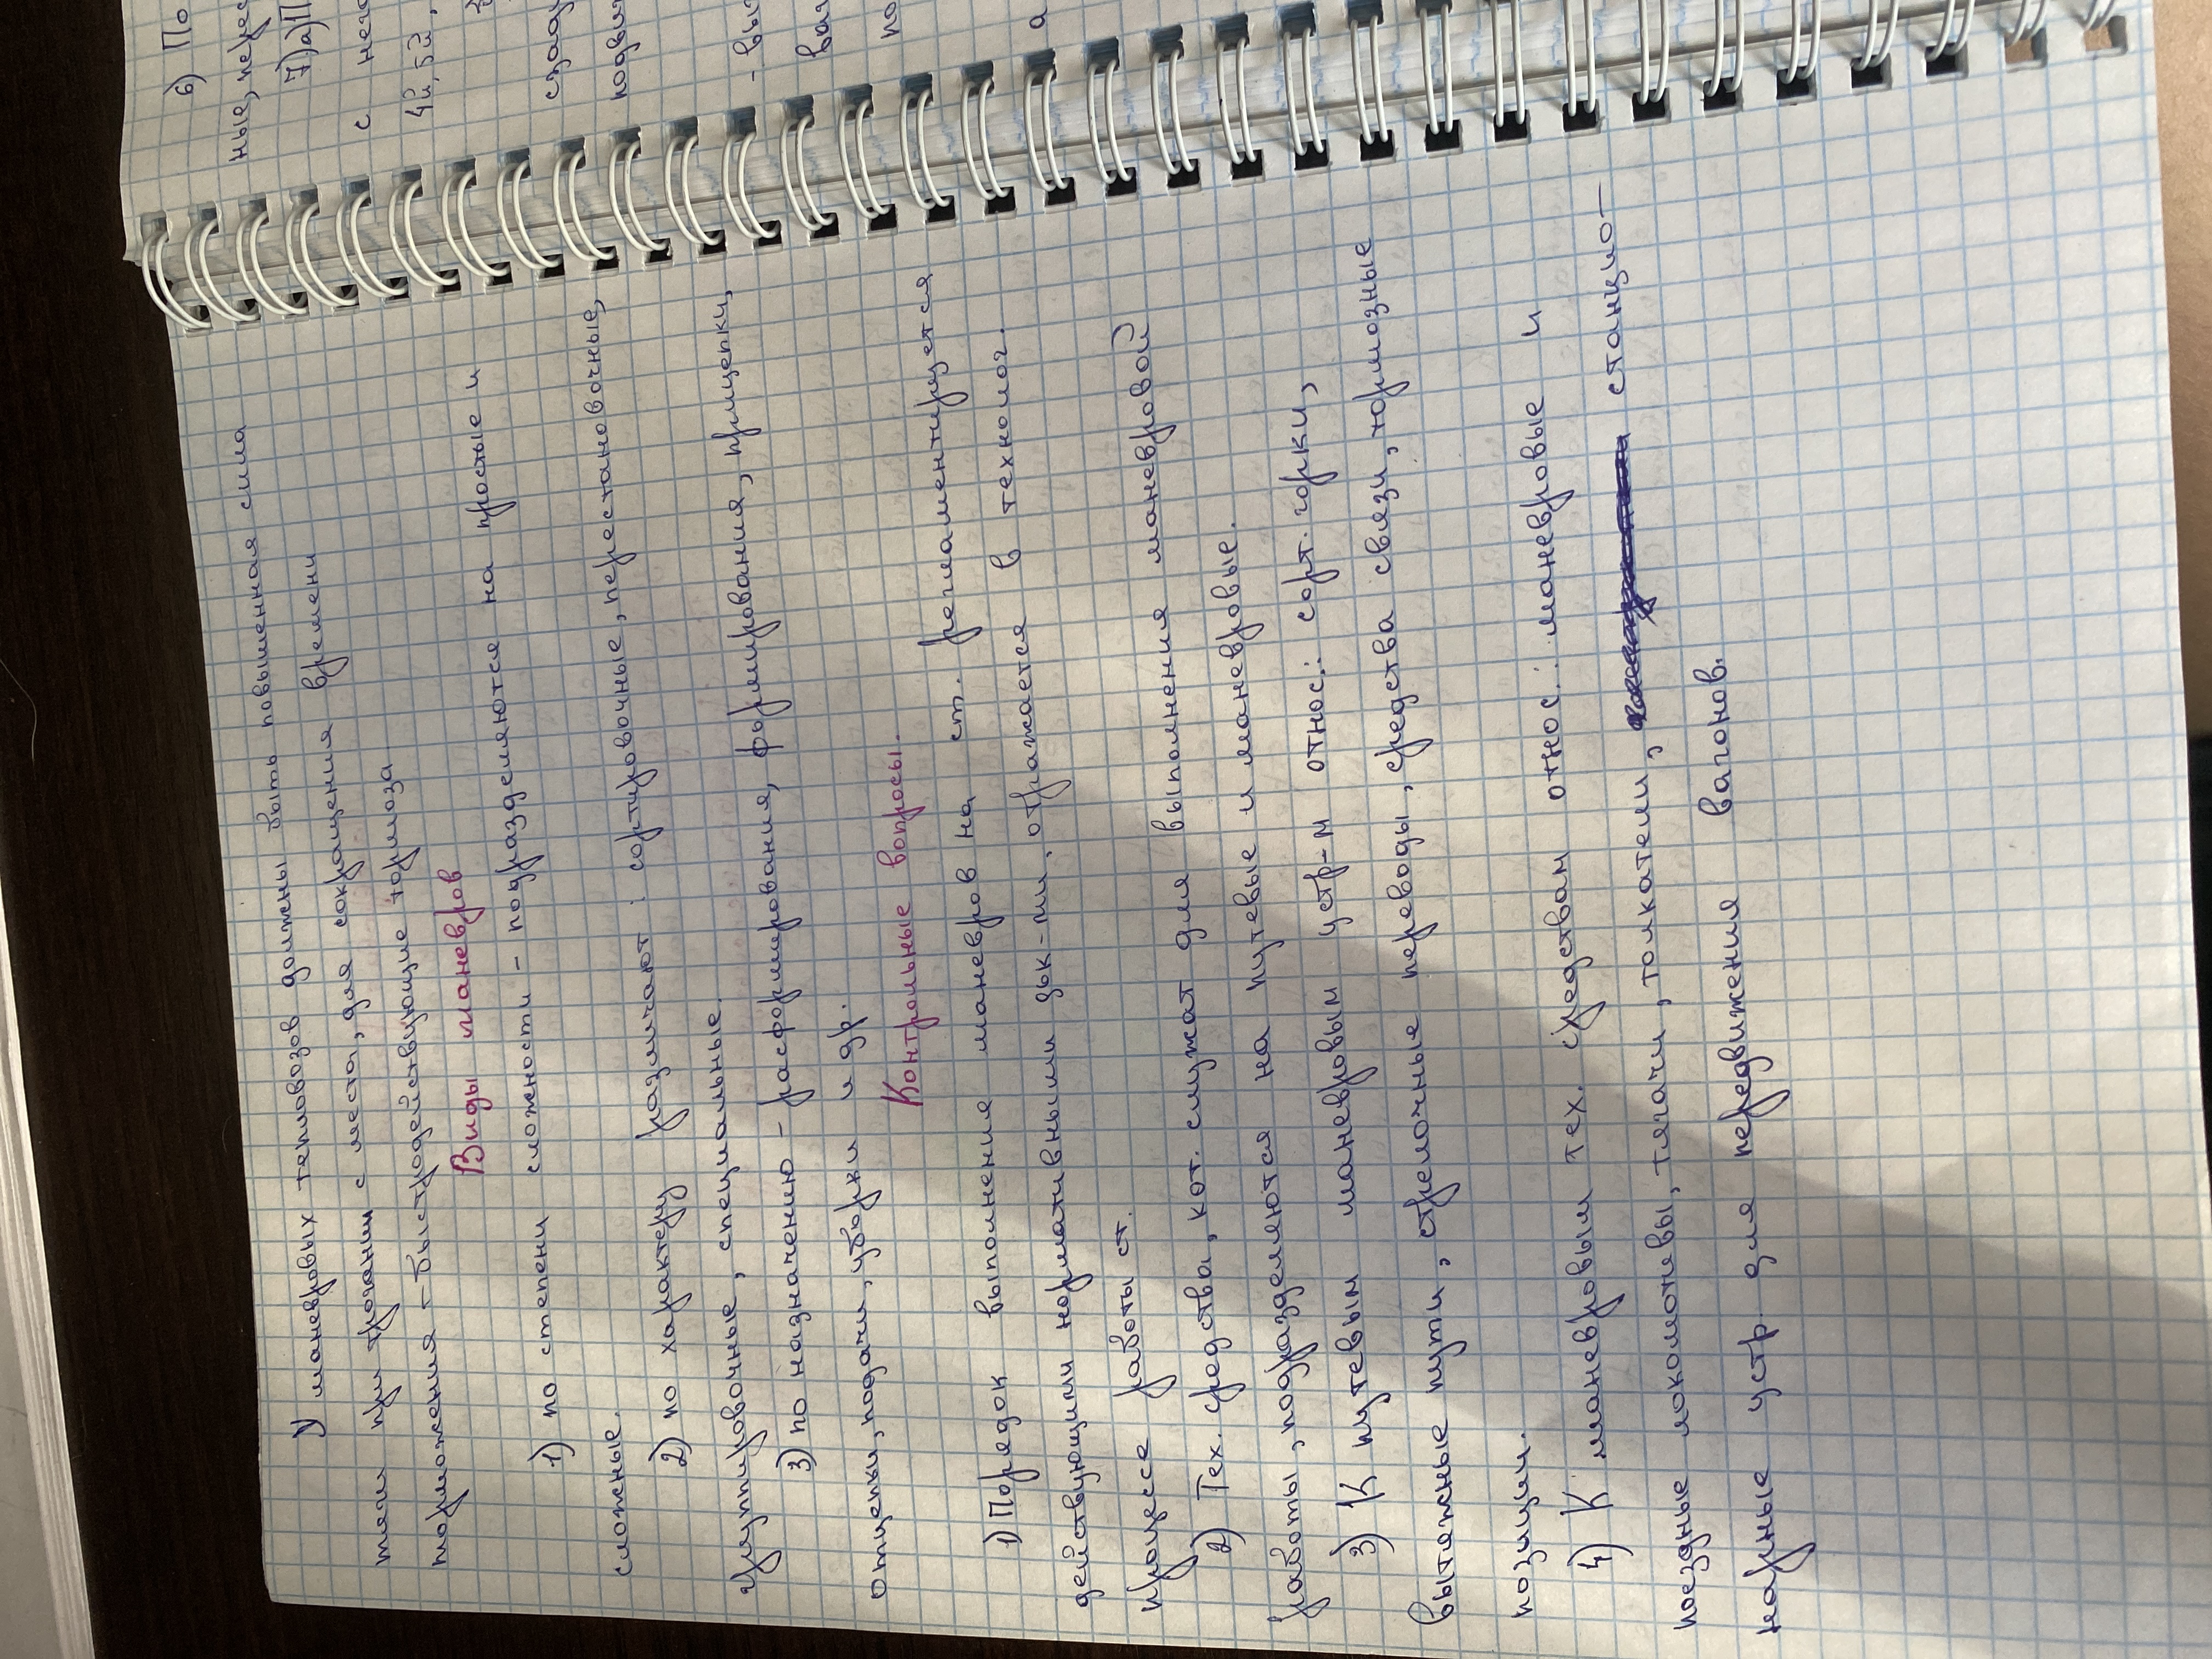 У маневровых тепловозов должны быть повышенная сила
тяги при трогании с места, для сокращения времени
торможения – быстродействующие тормоза
Виды маневров
1) по степени сложности – подразделяются на простые и
сложные.
2) по характеру различают: сортировочные, перестановочные,
группировочные, специальные.
3) по назначению – расформирования, формирования, прицепки,
отцепки, подачи, уборки и др.
Контрольные вопросы.
1) Порядок выполнения маневров на ст. регламентируется
действующими нормативными док-ми, отражается в технолог.
процессе работы ст.
2) Тех. средства, кот. служат для выполнения маневровой
работы, подразделяются на путевые и маневровые.
3) К путевым маневровым устр-м относ.: сорт. горки,
вытяжные пути, стрелочные переводы, средства связи, тормозные
позиции.
4) К маневровым тех. средствам относ.: маневровые и
поездные локомотивы, тягачи, толкатели, станцио–
нарные устр. для передвижения вагонов.
6) По
ные, перес
7) а) П
с
4й, 5й,
сзад
подви
- вы
ваг
по
а